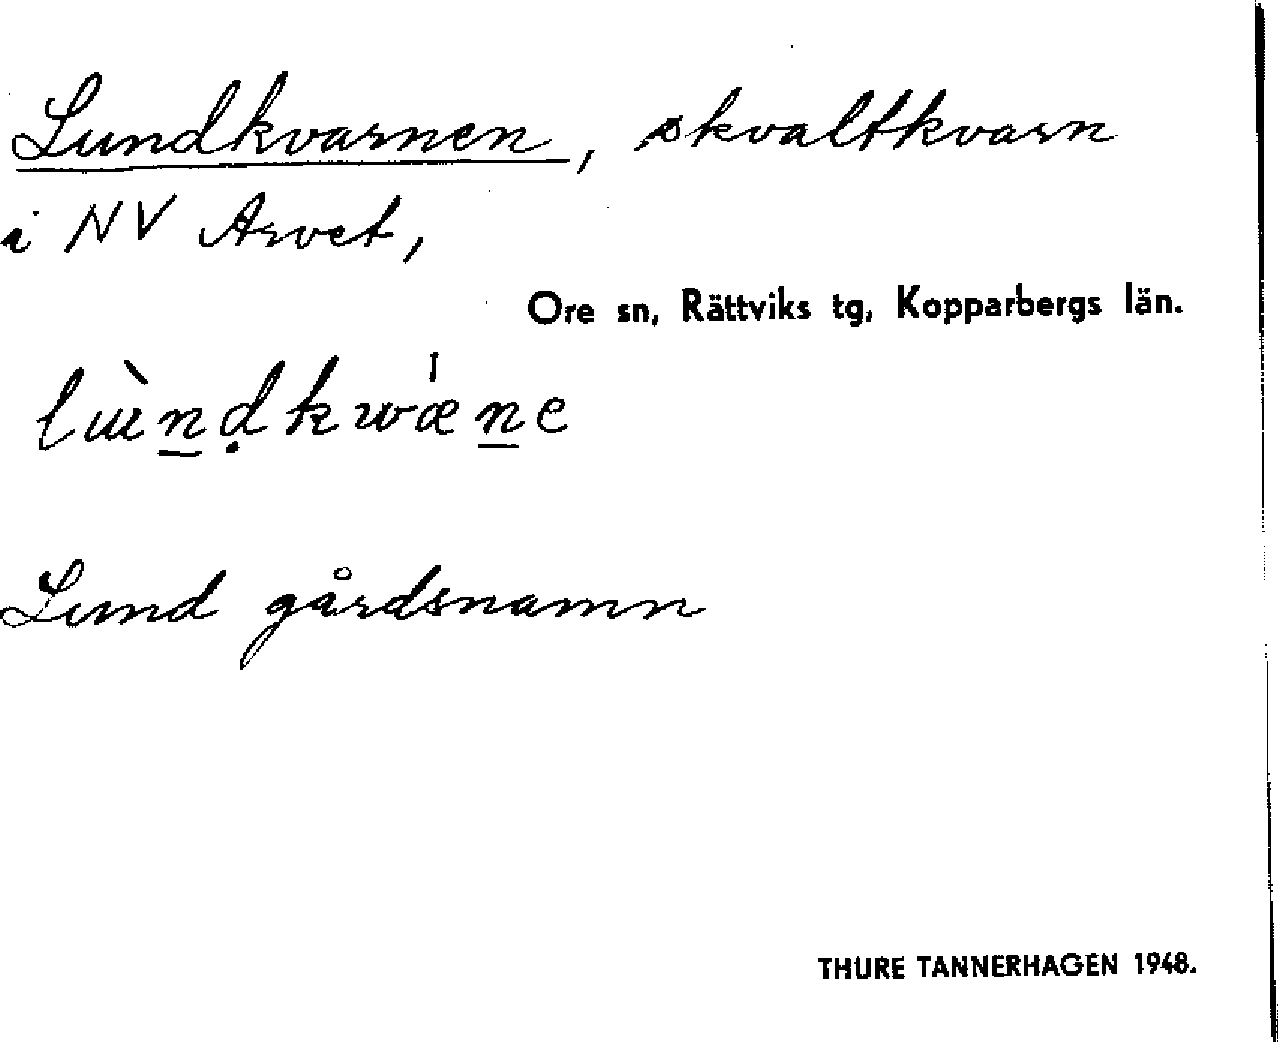 Lundkvarnen, skvaltkvarn
i NV Arvet,
Ore sn, Rättviks tg, Kopparbergs län.
Lund gårdsnamn
THURE TANNERHAGEN 1948.